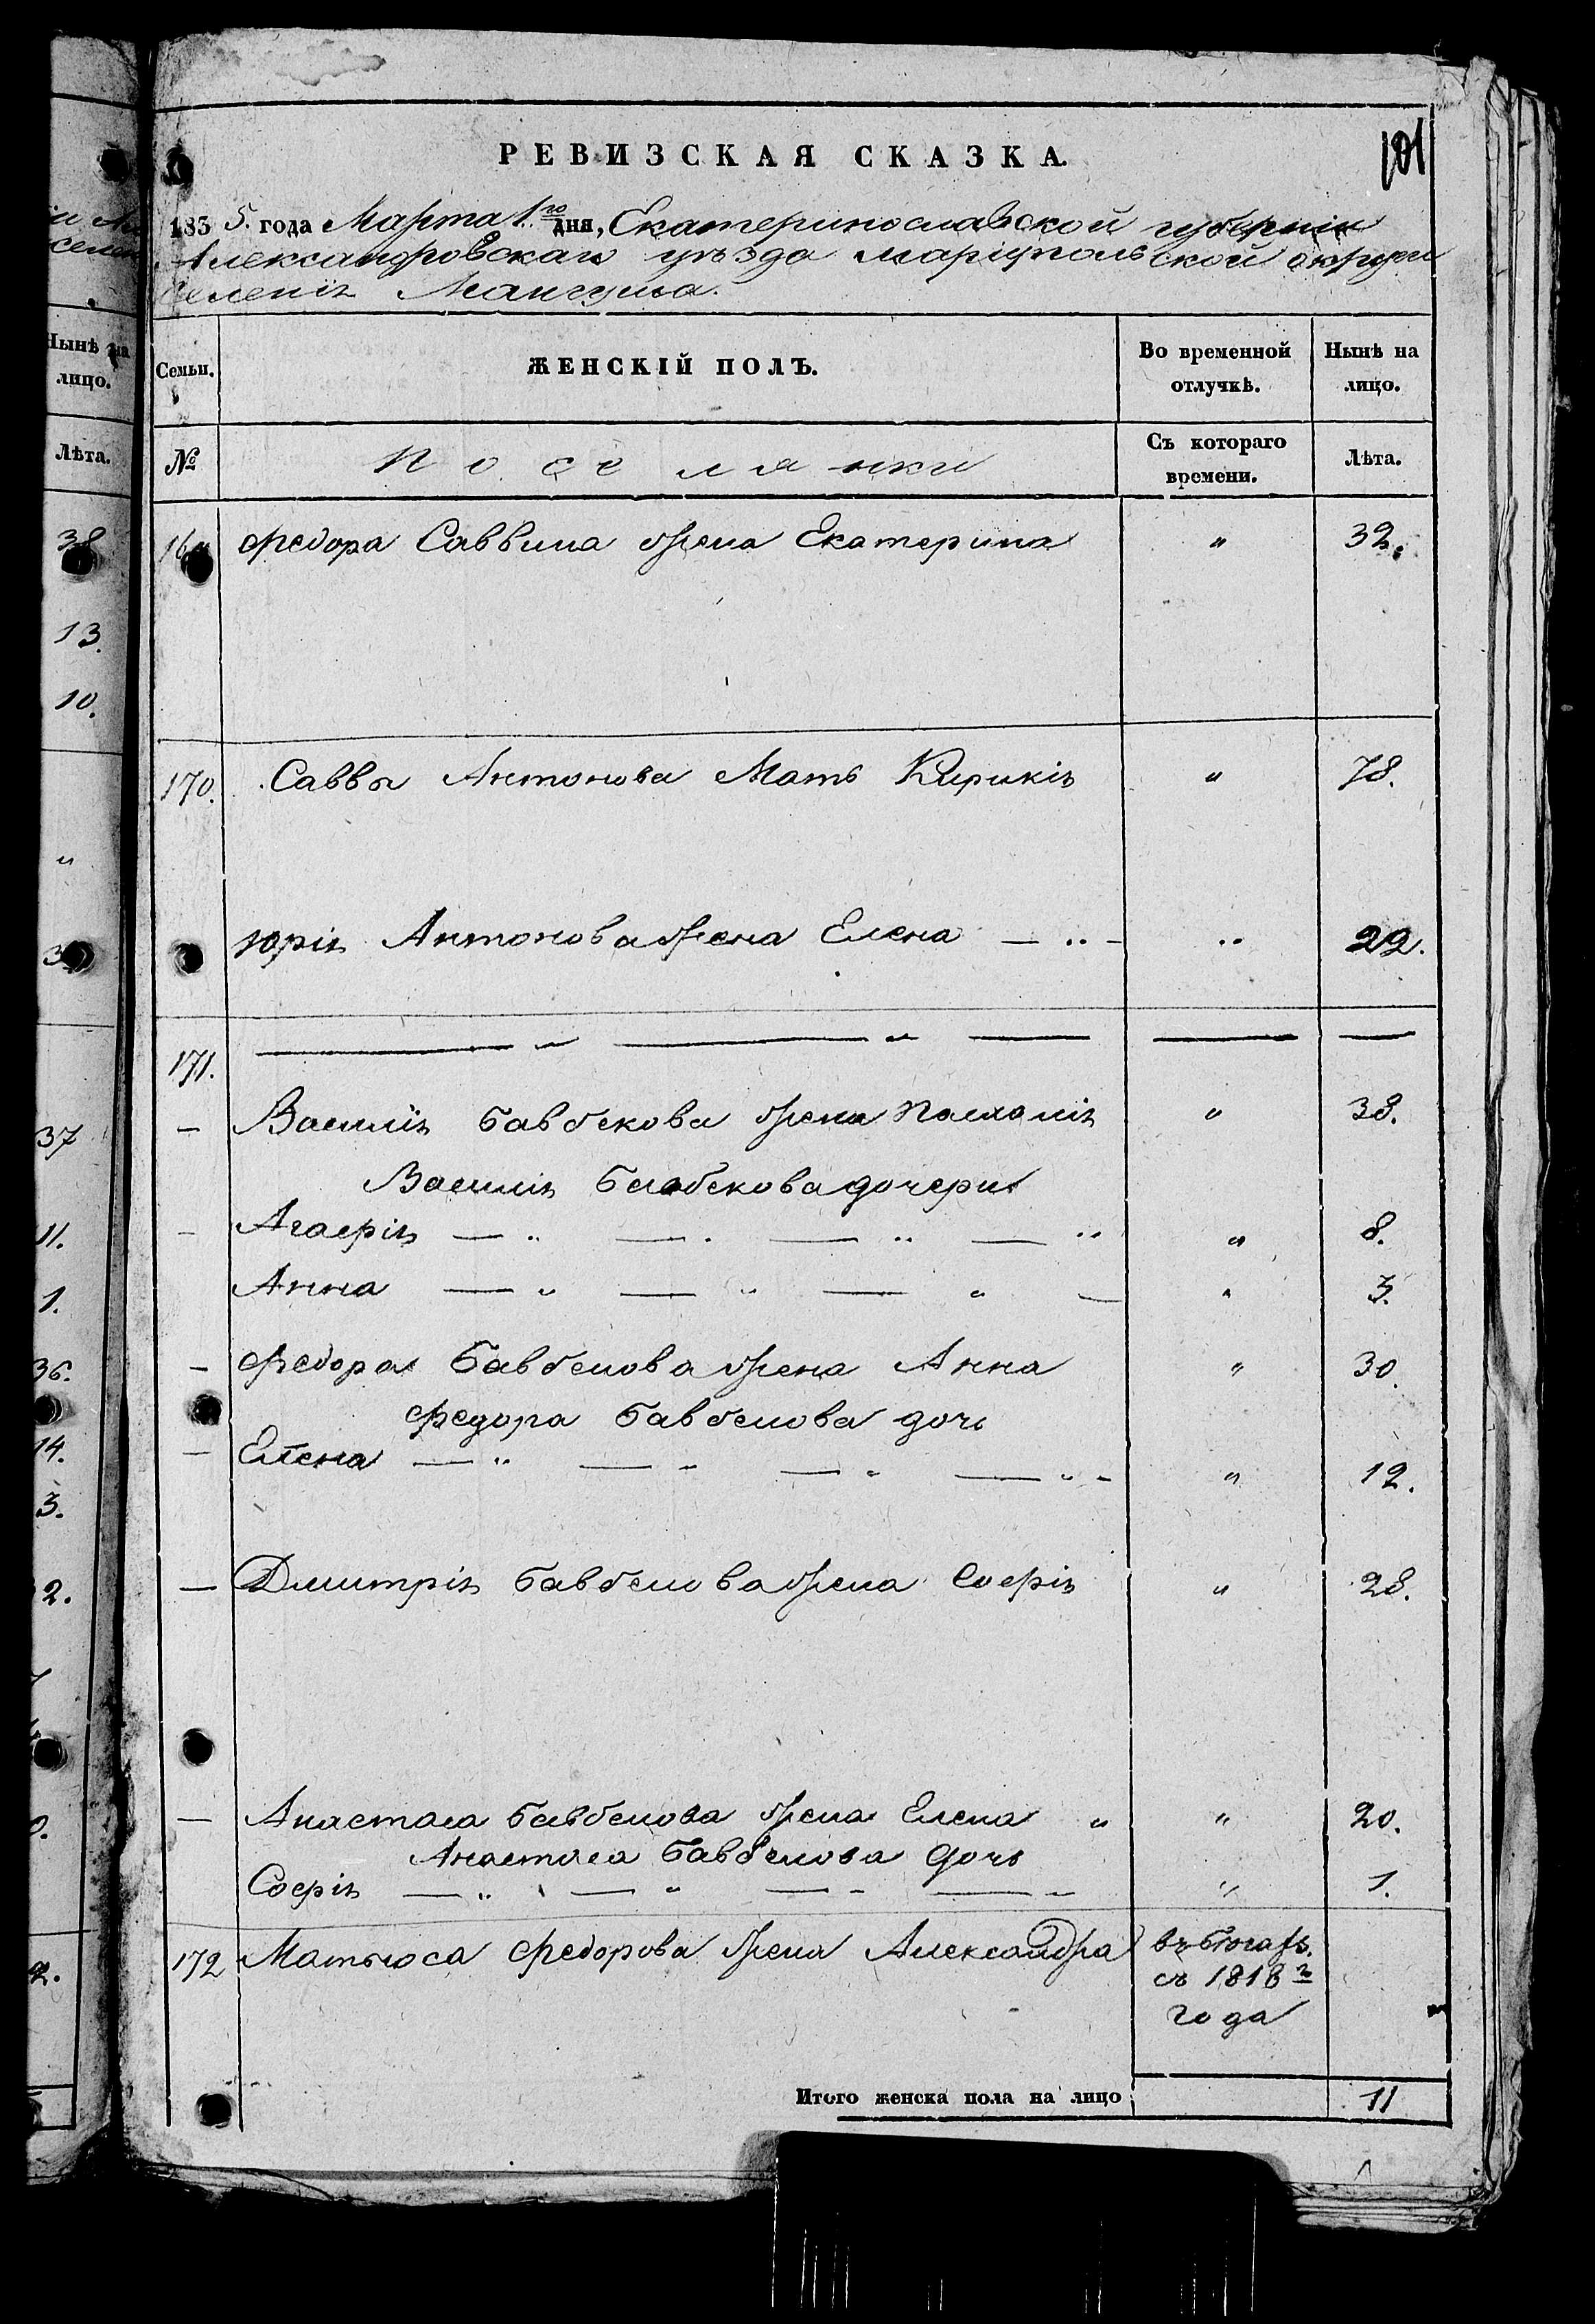 101
РЕВИЗСКАЯ СКАЗКА.
1835. года Марта 1го дня, Екатеринославской губерніи
Александровскаго уѣзда маріупольской округи
селенія Мангуша.
Семьи. ЖЕНСКІЙ ПОЛЪ. Во временной отлучкѣ. Нынѣ на лицо.
№ Поселянки Съ котораго времени. Лѣта.
Федора Саввина жена Екатерина " 32.
170. Саввы Антонова Мать Кирикія " 78.
Юрія Антонова жена Елена — " — " 22.
171. — " — " — — —
— Василія Бавбекова жена " 38.
Василія Бавбекова дочери
— Агафія — " — " — " — " " 8.
Анна — " — " — " — " 3.
— Федора Бавбекова жена Анна " 30.
Федора Бавбекова дочь
— Елена — " — " — " — " — " 12.
— Дмитрія Бавбекова жена Софія " 28.
— Анастаса Бавбекова жена Елена " " 20.
Анастаса Бавбекова дочь
Софія — " — " — " — " " 1.
172 Матьюса Федорова жена Александра въ бѣгахъ
съ 1818го
года
Итого женска пола на лицо 11
Нынѣ на
лицо.
Лѣта.
38
13.
10.
"
37
11.
1.
36.
14.
3.
2.